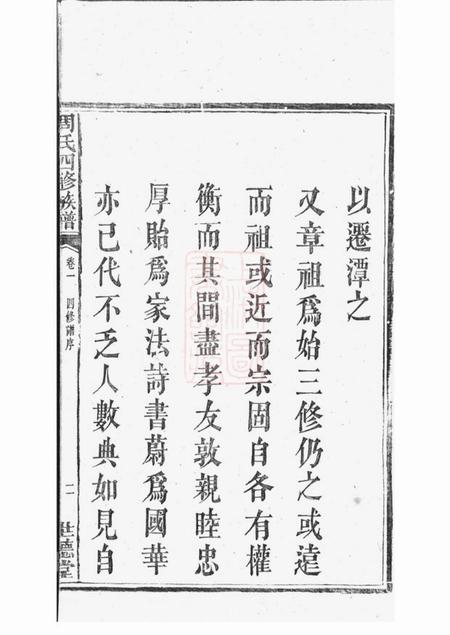 以遷潭之
又章祖爲始三修仍之或遠
而祖或近而宗固自各有權
衡而其間盡孝友敦親睦忠
厚貽爲家法詩書蔚爲國華
亦已代不乏人數典如見自
周氏四修族譜
卷一
四修譜序
二
世德堂